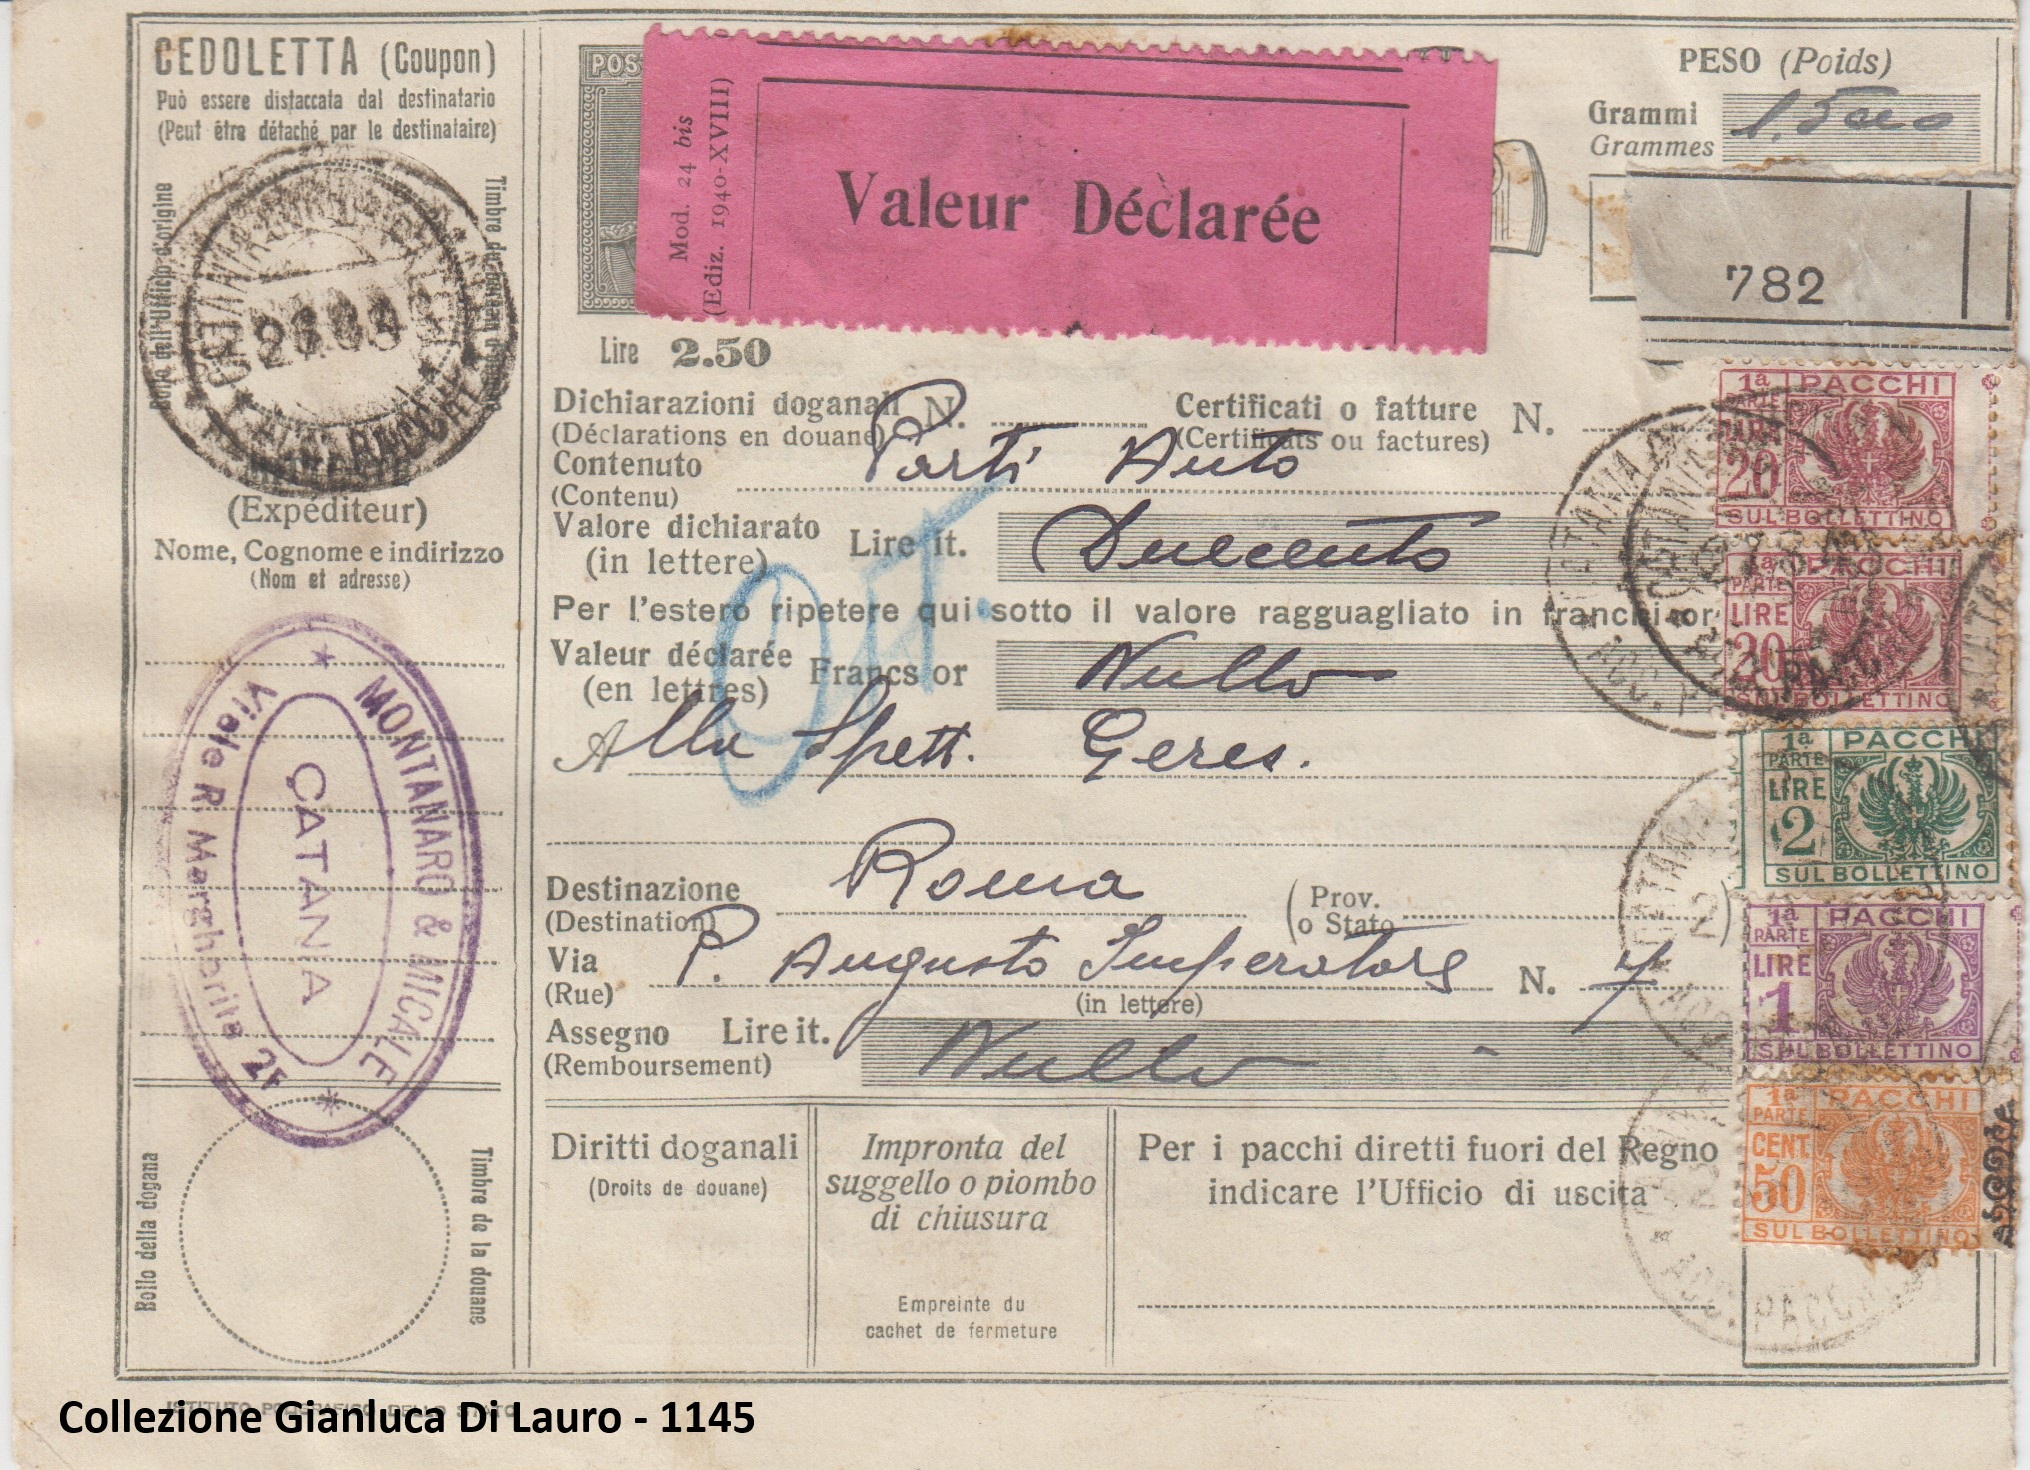 CEDOLETTA (Coupon)
Può essere distaccata dal destinatario
(Peut être détaché par le destinataire)
Bollo dell'Ufficio d'origine
Timbre du bureau d'origine
CATANIA
PACCHI
MITTENTE
(Expéditeur)
Nome, Cognome e indirizzo
(Nom et adresse)
MONTANARO & MICALE
CATANIA
Viale R. Margherita 2F
Bollo della dogana
Timbre de la douane
POS
Mod. 24 bis
(Ediz. 1940-XVIII)
Valeur Déclarée
PESO (Poids)
Grammi
Grammes
1.500
782
Lire 2.50
Dichiarazioni doganali N.
(Déclarations en douane)
Certificati o fatture N.
(Certificats ou factures)
Contenuto Parti Auto
(Contenu)
Valore dichiarato Lire it. Duecento
(in lettere)
Per l'estero ripetere qui sotto il valore ragguagliato in franchi or
Valeur déclarée Francs or Nullo
(en lettres)
Alla Spett. Geres.
Destinazione Roma (Prov.
(Destination) o Stato )
Via P. Augusto Imperatore N. 7
(Rue) (in lettere)
Assegno Lire it. Nullo
(Remboursement)
Diritti doganali
(Droits de douane)
Impronta del
suggello o piombo
di chiusura
Empreinte du
cachet de fermeture
Per i pacchi diretti fuori del Regno
indicare l'Ufficio di uscita
1a PARTE PACCHI
LIRE 20
SUL BOLLETTINO
1a PARTE PACCHI
LIRE 20
SUL BOLLETTINO
1a PARTE PACCHI
LIRE 2
SUL BOLLETTINO
1a PARTE PACCHI
LIRE 1
SUL BOLLETTINO
1a PARTE PACCHI
CENT. 50
SUL BOLLETTINO
CATANIA
ACC. PACCHI
ISTITUTO POLIGRAFICO DELLO STATO
Collezione Gianluca Di Lauro - 1145